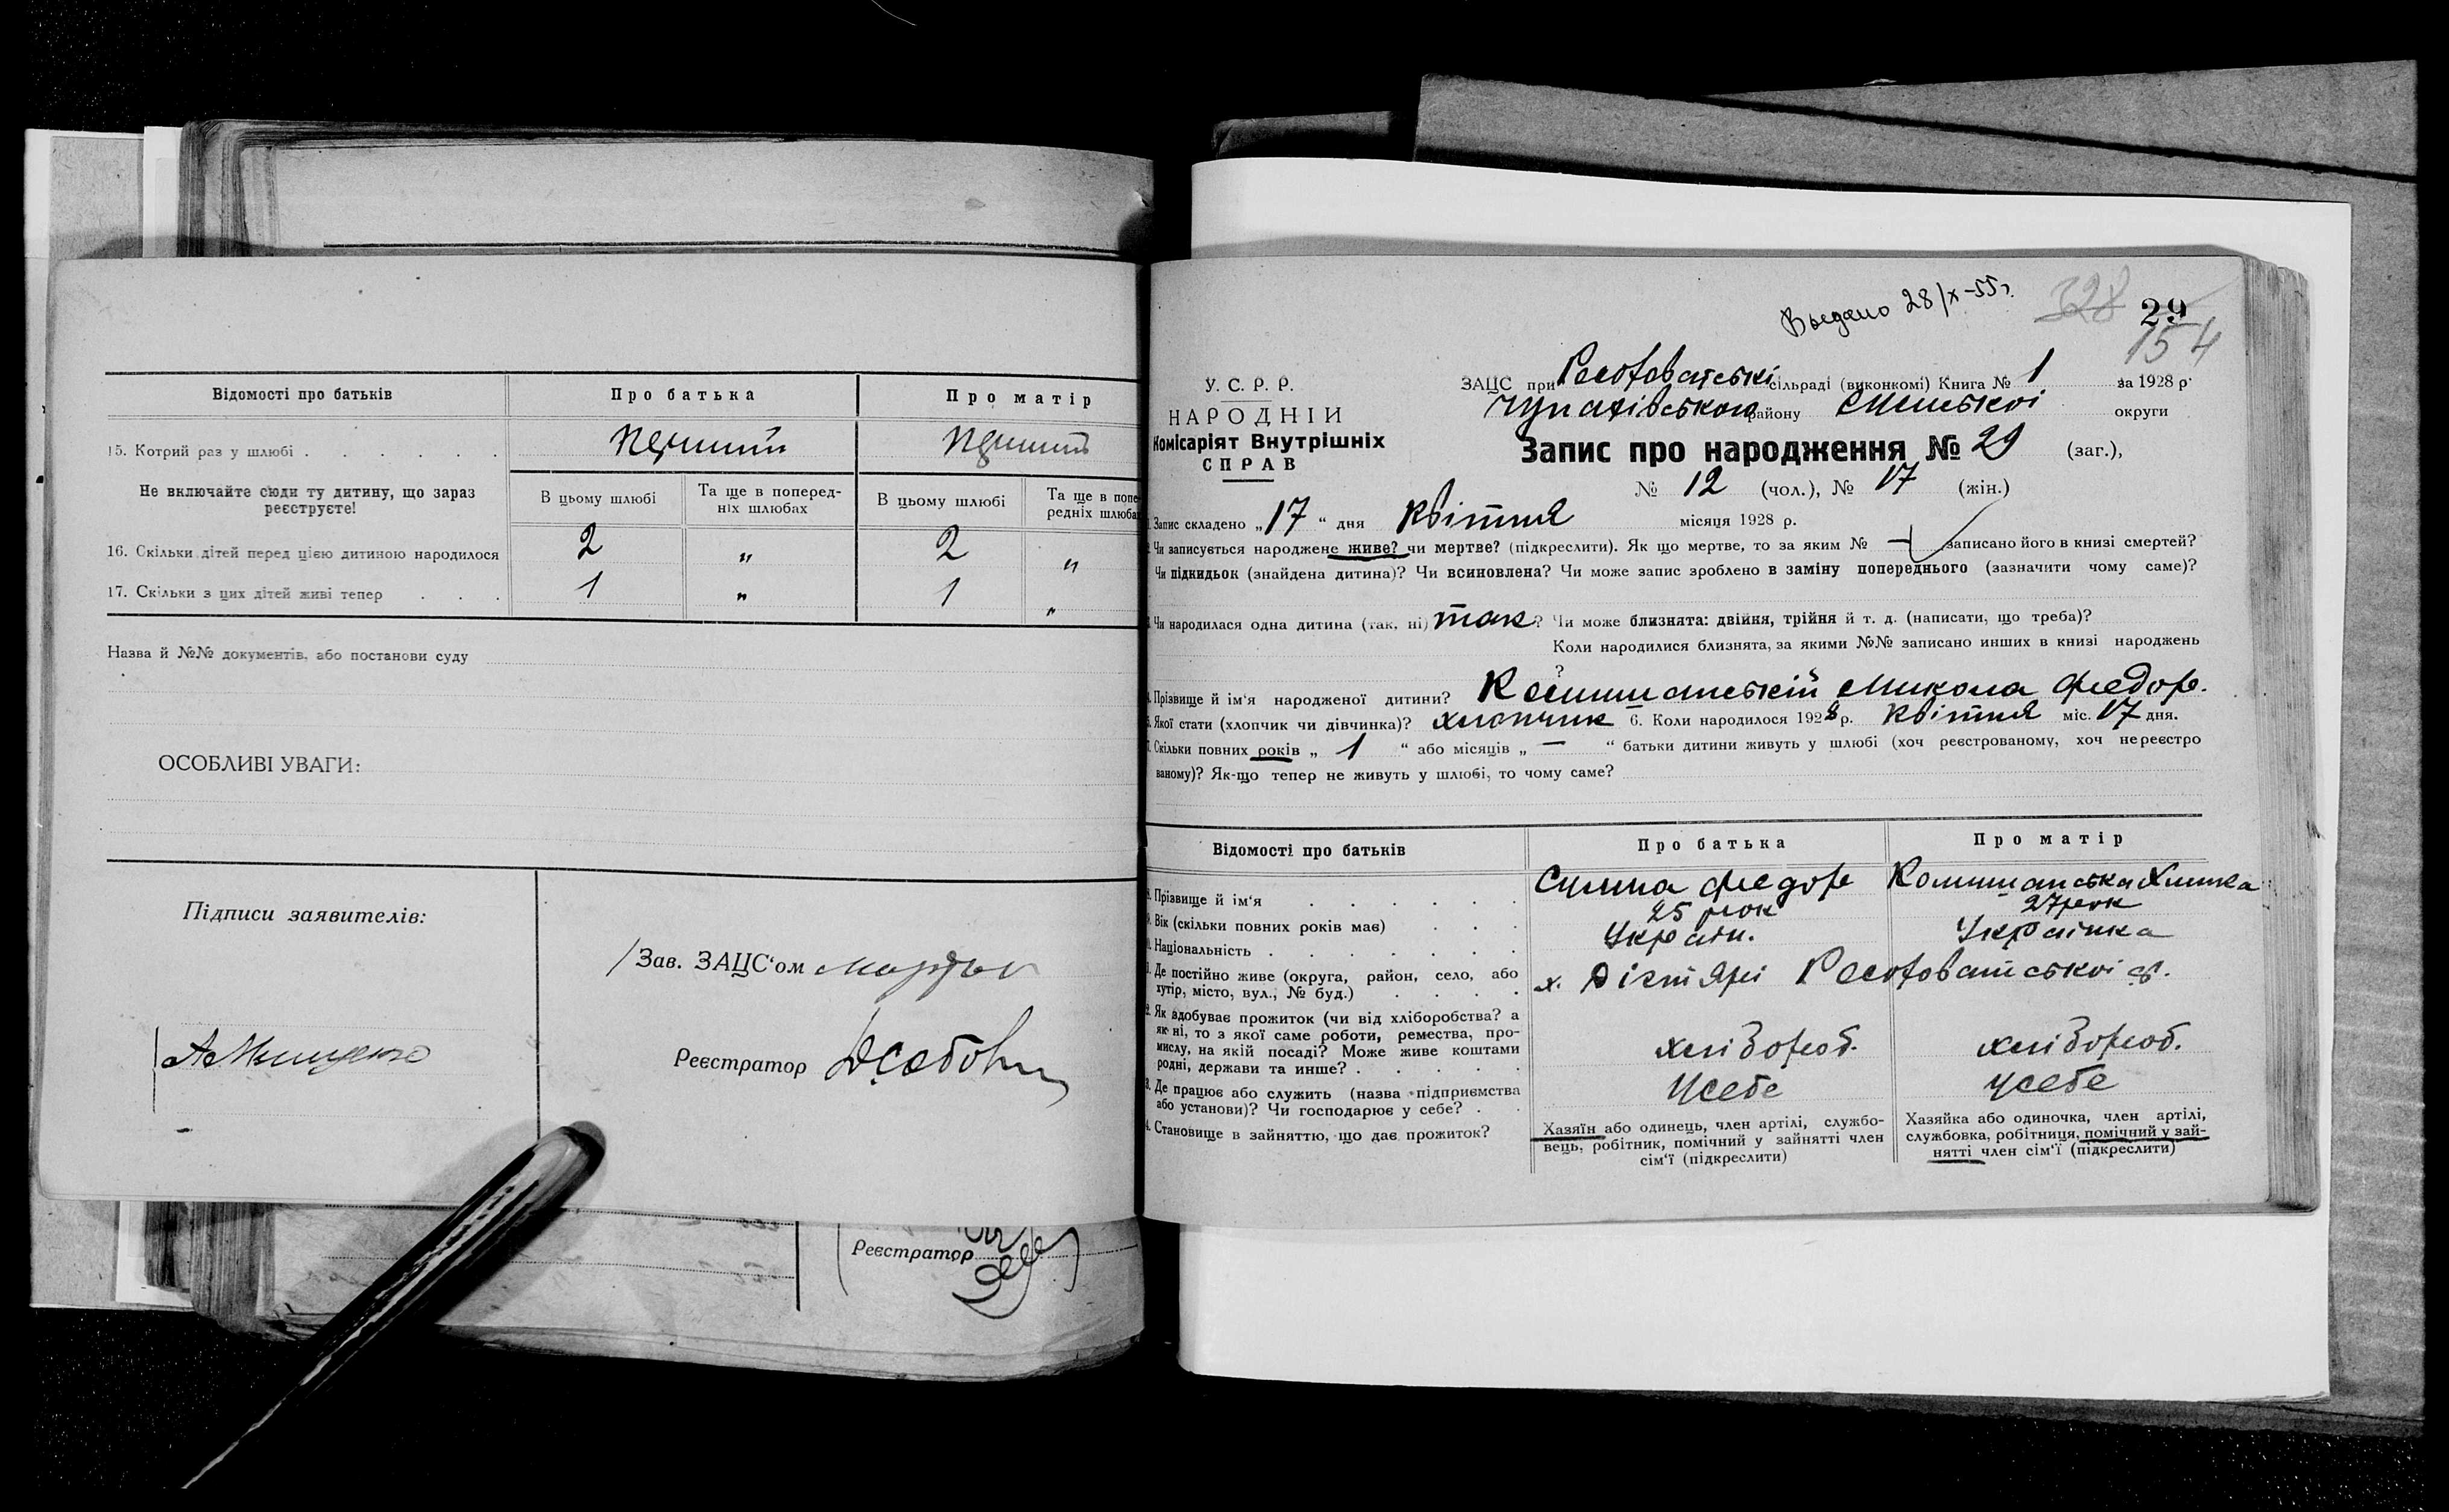 Відомості про батьків
Про батька
Про матір
15. Котрий раз у шлюбі
Перший
Перший
Не включайте сюди ту дитину, що зараз реєструєте!
В цьому шлюбі
Та ще в поперед-
ніх шлюбах
В цьому шлюбі
Та ще в попе-
редніх шлюбах
16. Скільки дітей перед цією дитиною народилося
2
"
2
"
17. Скільки з цих дітей живі тепер
1
"
1
"
Назва й №№ документів, або постанови суду
ОСОБЛИВІ УВАГИ:
Підписи заявителів:
Зав. ЗАЦС'ом
Реєстратор
Реєстратор
Выдано 28/X-55 г.
328
29
154
У. С. Р. Р.
НАРОДНІЙ
Комісаріят Внутрішніх
СПРАВ
ЗАЦС при сільраді (виконкомі) Книга № 1 за 1928 р.
району округи
Запис про народження № 29 (заг.),
№ 12 (чол.), № 17 (жін.)
Запис складено „17“ дня Квітня місяця 1928 р.
Чи записується народжене живе? чи мертве? (підкреслити). Як що мертве, то за яким № — записано його в книзі смертей?
Чи підкидьок (знайдена дитина)? Чи всиновлена? Чи може запис зроблено в заміну попереднього (зазначити чому саме)?
Чи народилася одна дитина (так, ні) так? Чи може близнята: двійня, трійня й т. д. (написати, що треба)?
Коли народилися близнята, за якими №№ записано инших в книзі народжень
?
Прізвище й ім'я народженої дитини? Микола Федор.
Якої стати (хлопчик чи дівчинка)? хлопчик 6. Коли народилося 1928 р. Квітня міс. 17 дня.
Скільки повних років „ 1 “ або місяців „ — “ батьки дитини живуть у шлюбі (хоч реєстрованому, хоч нереєстро
ваному)? Як-що тепер не живуть у шлюбі, то чому саме?
Відомості про батьків
Про батька
Про матір
Прізвище й ім'я
Федор
Вік (скільки повних років має)
25 рок
27 рок
Національність
Україн.
Українка
Де постійно живе (округа, район, село, або
хутір, місто, вул., № буд.)
х. Дігтярі
Як здобуває прожиток (чи від хліборобства? а
як ні, то з якої саме роботи, ремества, про-
мислу, на якій посаді? Може живе коштами
родні, держави та инше?
хлібороб.
хлібороб.
Де працює або служить (назва підприємства
або установи)? Чи господарює у себе?
У себе
У себе
Становище в зайняттю, що дає прожиток?
Хазяїн або одинець, член артілі, службо-
вець, робітник, помічний у зайнятті член
сім'ї (підкреслити)
Хазяйка або одиночка, член артілі,
службовка, робітниця, помічний у зай-
нятті член сім'ї (підкреслити)